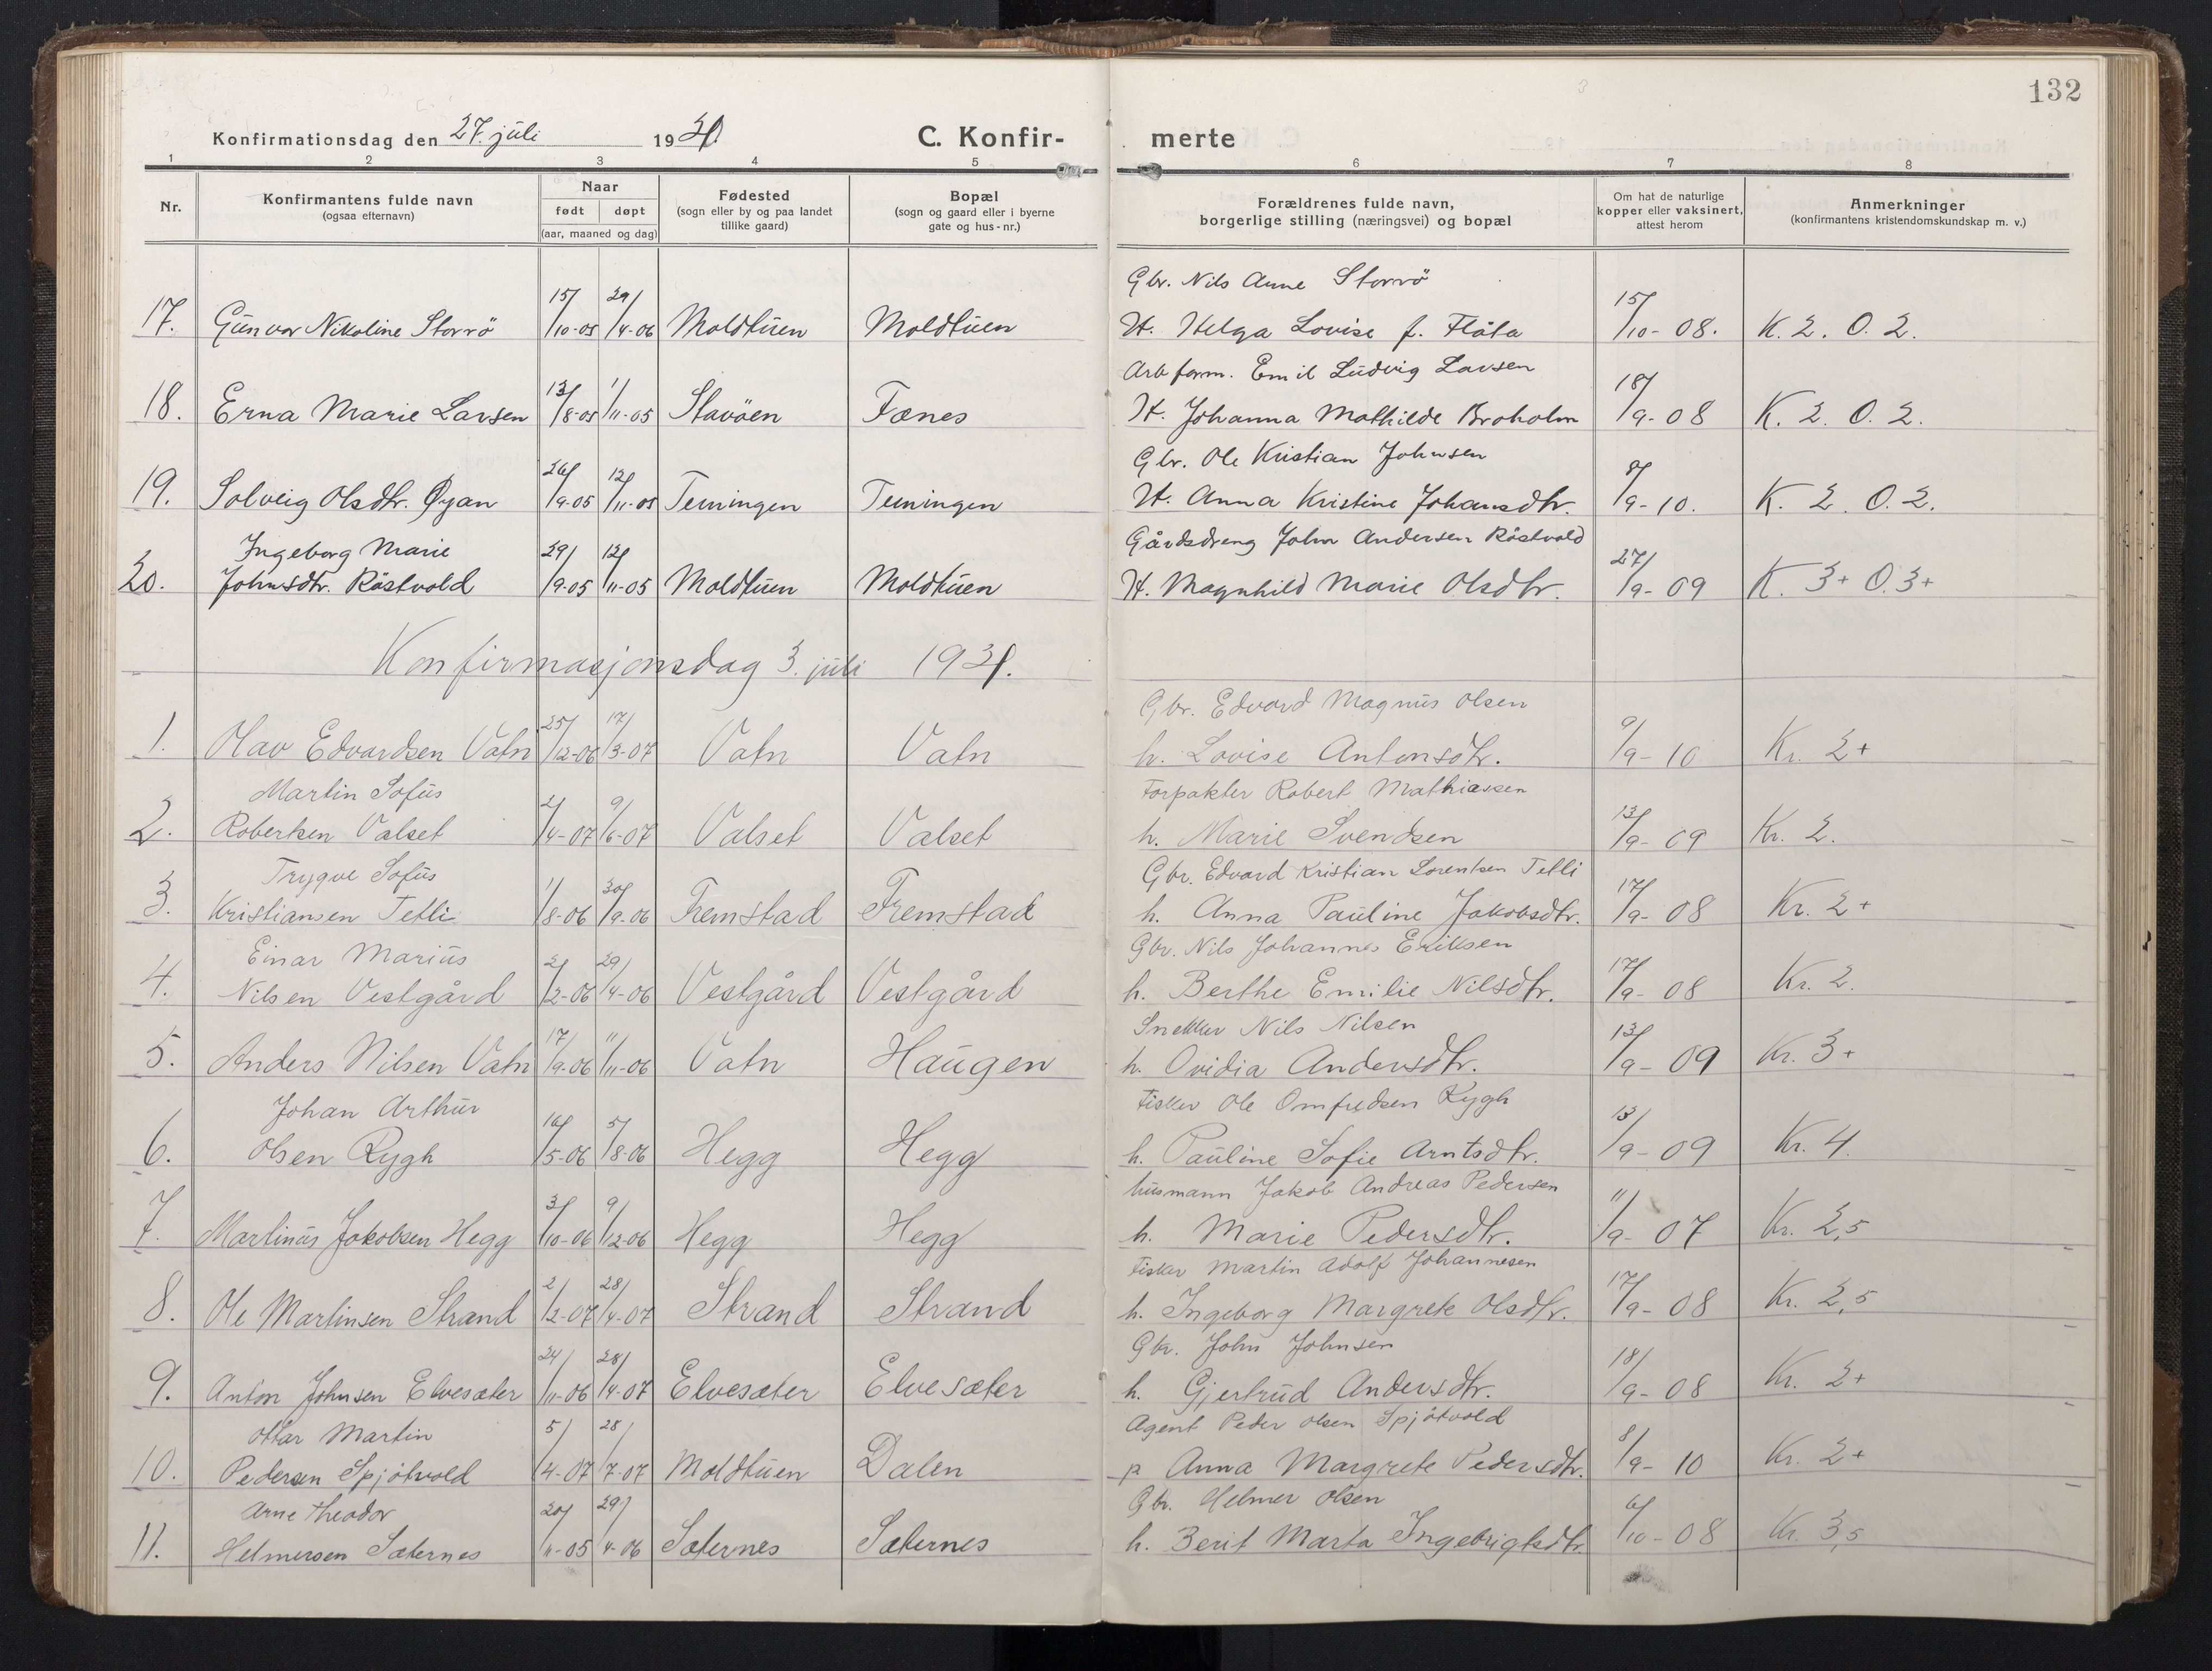 132
Konfirmationsdag den 27. juli 19
C. Konfir-
merte
1 2 3 4 5 6 7 8
Nr.
Konfirmantens fulde navn
(ogsaa efternavn)
Naar
født døpt
(aar, maaned og dag)
Fødested
(sogn eller by og paa landet
tillike gaard)
Bopæl
(sogn og gaard eller i byerne
gate og hus-nr.)
Forældrenes fulde navn,
borgerlige stilling (næringsvei) og bopæl
Om hat de naturlige
kopper eller vaksinert,
attest herom
Anmerkninger
(konfirmantens kristendomskundskap m. v.)
Gbr. Nils Arne Storrö
17. Gunvor Nikoline Storrö 15/10-05 29/4-06 Moldtuen Moldtuen H. Helga Lovise f. Flåta 15/10-08. K. 2. O. 2.
Arb form. Emil Ludvig Larsen
18. Erna Marie Larsen 13/8-05 1/11-05 Stavöen Fænes H. Johanna Mathilde Broholm 18/9-08 K. 2. O. 2.
Gbr. Ole Kristian Johnsen
19. Solveig Olsdtr. Øyan 26/9-05 12/11-05 Teiningen Teiningen H. Anna Kristine Johansdtr. 8/9-10. K. 2. O. 2.
Ingeborg Marie Gårdsdreng John Andersen Röstvold
20. Johnsdtr. Röstvold 29/9-05 12/11-05 Moldtuen Moldtuen H. Magnhild Marie Olsdtr. 27/9-09 K. 3+ O. 3+
Konfirmasjonsdag 3. juli 1921.
Gbr. Edvard Magnus Olsen
1. Olav Edvardsen Vatn 25/12-06 17/3-07 Vatn Vatn h. Lovise Antonsdtr. 9/9-10 Kr. 2+
Martin Sofus Forpakter Robert Mathiassen
2. Robertsen Valset 2/4-07 9/6-07 Valset Valset h. Marie Svendsen 13/9-09 Kr. 2.
Trygve Sofus Gbr. Edvard Kristian Lorentsen Tetli
3. Kristiansen Tetli 1/8-06 30/9-06 Fremstad Fremstad h. Anna Pauline Jakobsdtr. 17/9-08 Kr. 2+
Einar Marius Gbr. Nils Johannes Eriksen
4. Nilsen Vestgård 2/2-06 29/4-06 Vestgård Vestgård h. Berthe Emilie Nilsdtr. 17/9-08 Kr. 2.
Snekker Nils Nilsen
5. Anders Nilsen Vatn 17/9-06 11/11-06 Vatn Haugen h. Ovidia Andersdtr. 13/9-09 Kr. 3+
Johan Arthur Fisker Ole Omfredsen Rygh
6. Olsen Rygh 16/5-06 5/8-06 Hegg Hegg h. Pauline Sofie Arntsdtr. 13/9-09 Kr. 4.
husmann Jakob Andreas Pedersen
7. Martinus Jakobsen Hegg 3/10-06 9/12-06 Hegg Hegg h. Marie Pedersdtr. 11/9-07 Kr. 2,5
Fisker Martin Adolf Johannesen
8. Ole Martinsen Strand 2/2-07 28/4-07 Strand Strand h. Ingeborg Margrete Olsdtr. 17/9-08 Kr. 2,5
Gbr. John Johnsen
9. Anton Johnsen Elvesæter 24/11-06 28/4-07 Elvesæter Elvesæter h. Gjertrud Andersdtr. 18/9-08 Kr. 2+
Ottar Martin Agent Peder Olsen Spjötvold
10. Pedersen Spjötvold 5/4-07 28/7-07 Moldtuen Dalen p Anna Margrete Pedersdtr. 8/9-10 Kr. 2+
Arne Theodor Gbr. Helmer Olsen
11. Helmersen Sæternes 20/11-05 29/4-06 Sæternes Sæternes h. Berit Marta Ingebrigtsdtr. 6/10-08 Kr. 3,5